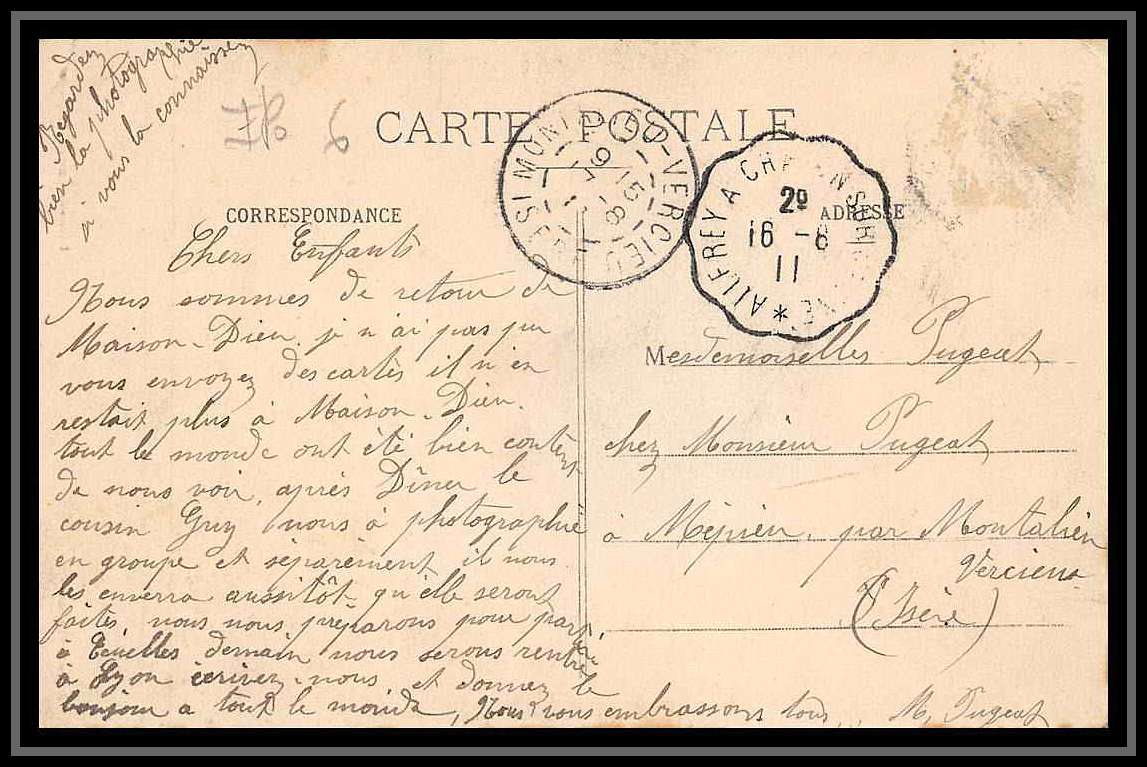 Regardez
bien la photographie
si vous la connaissez
CARTE POSTALE
CORRESPONDANCE
ADRESSE
MONTALIEU-VERCIEU
19 15
-8
2º
16 -8
11
Chers Enfants
Nous sommes de retour de
Maison-Dieu. je n'ai pas pu
vous envoyez des cartes il n'en
restait plus à Maison-Dieu.
tout le monde ont été bien content
de nous voir, après Dîner le
cousin Guy nous à photographié
en groupe et séparément il nous
les enverra aussitôt qu'elle seront
faites, nous nous préparons pour partir
à demain nous serons rentré
à Lyon écrivez-nous et donnez le
bonjour a tout le monde, Nous vous embrassons tous, M, Pugeat
Mesdemoiselles Pugeat
chez Monsieur Pugeat
à Mépieu, par Montalieu
Vercieu
(Isère)